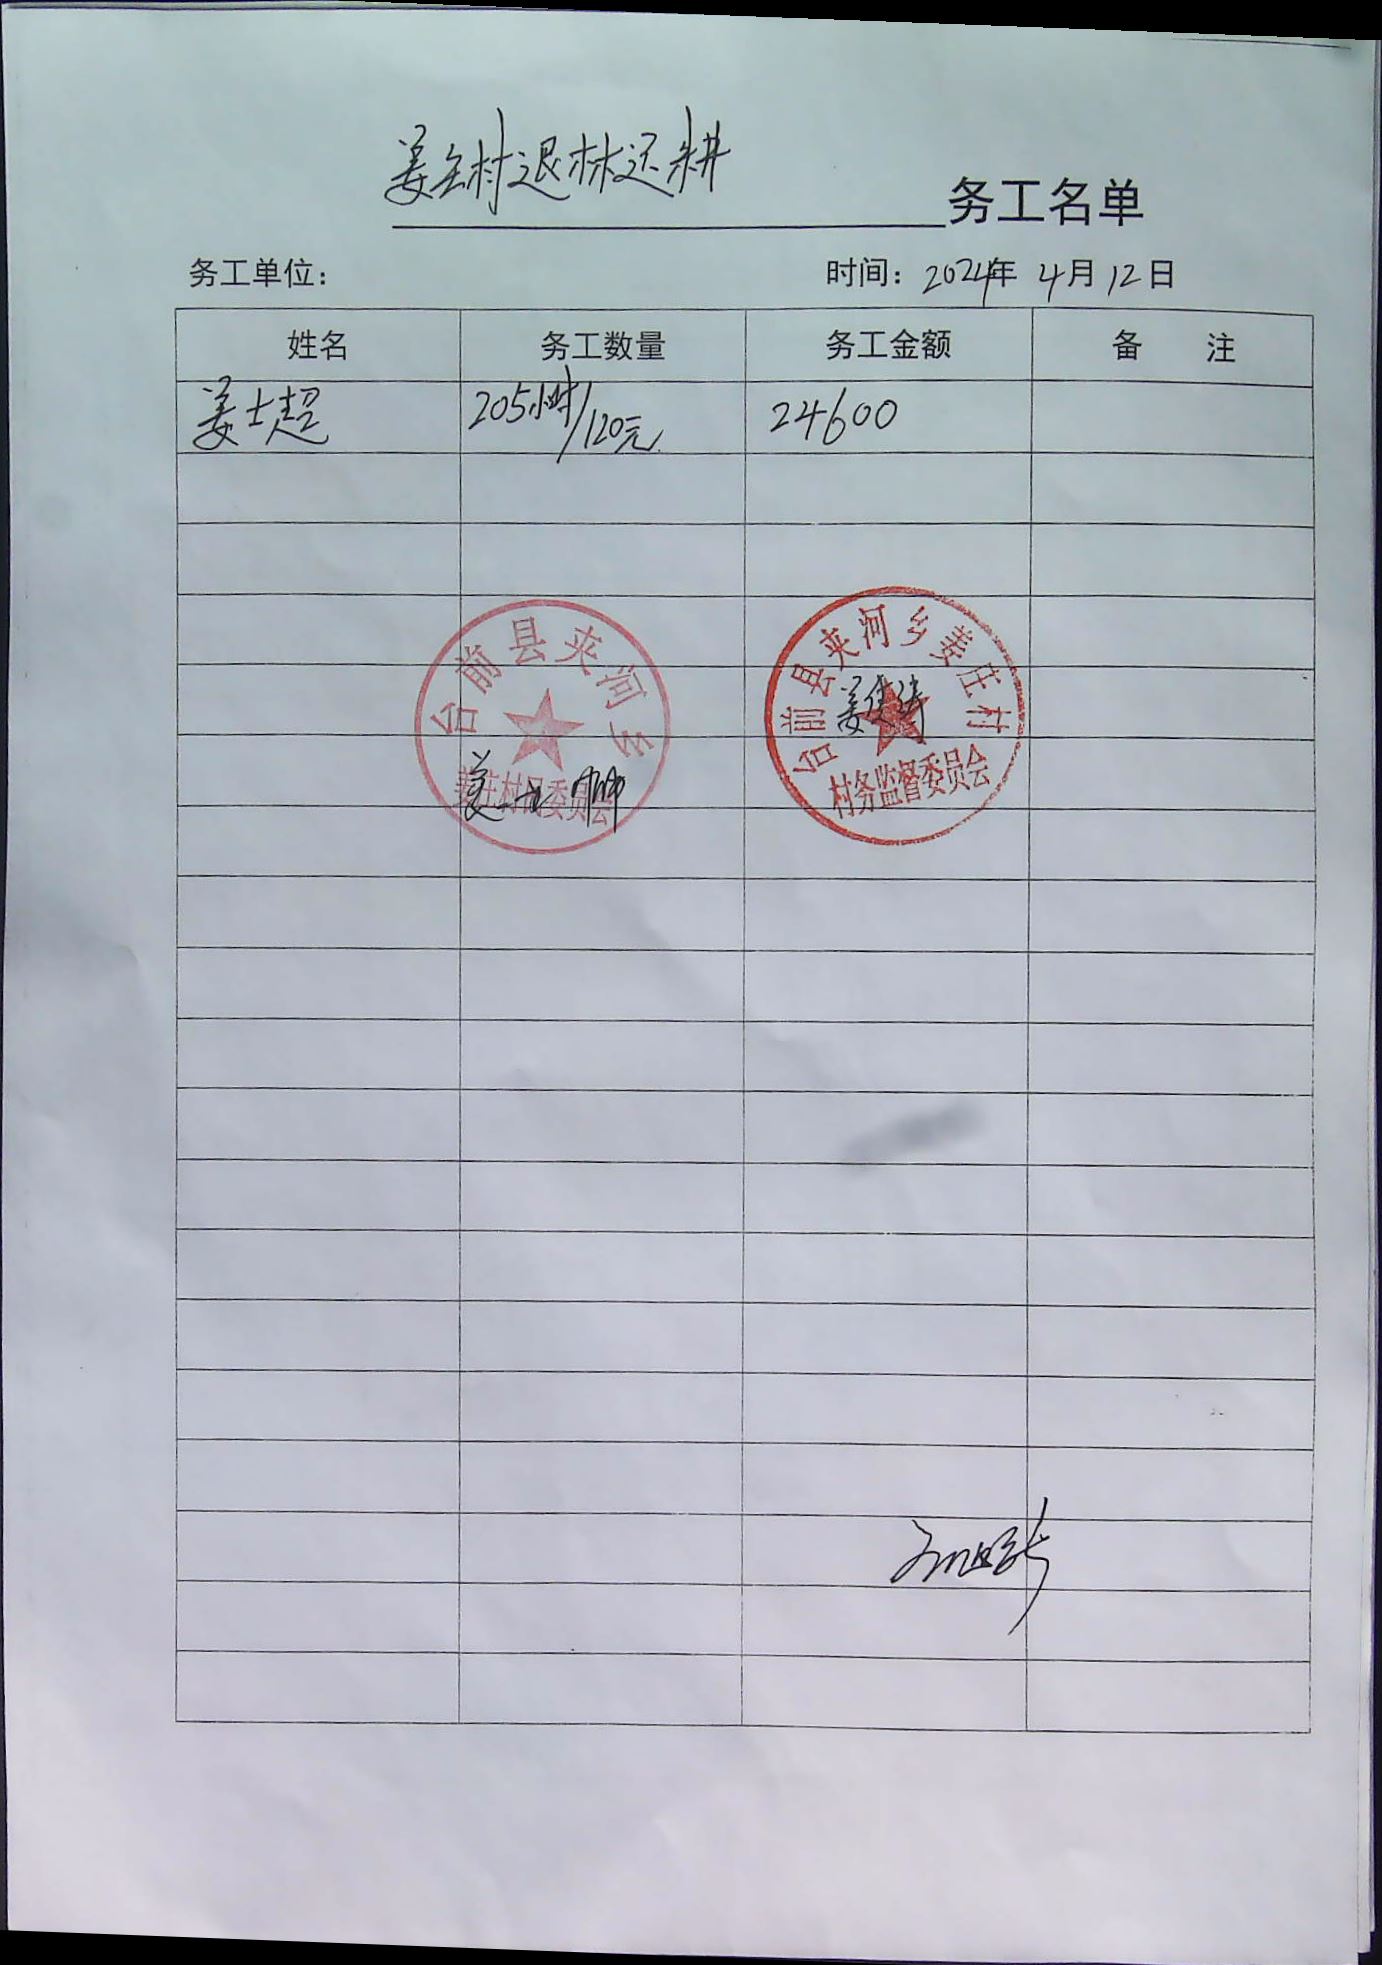 姜庄村退林还耕 务工名单
务工单位： 时间：2024年 4月12日
姓名 务工数量 务工金额 备 注
姜士超 205小时/120元 24600
台前县夹河乡
姜庄村民委员会
台前县夹河乡姜庄村
村务监督委员会